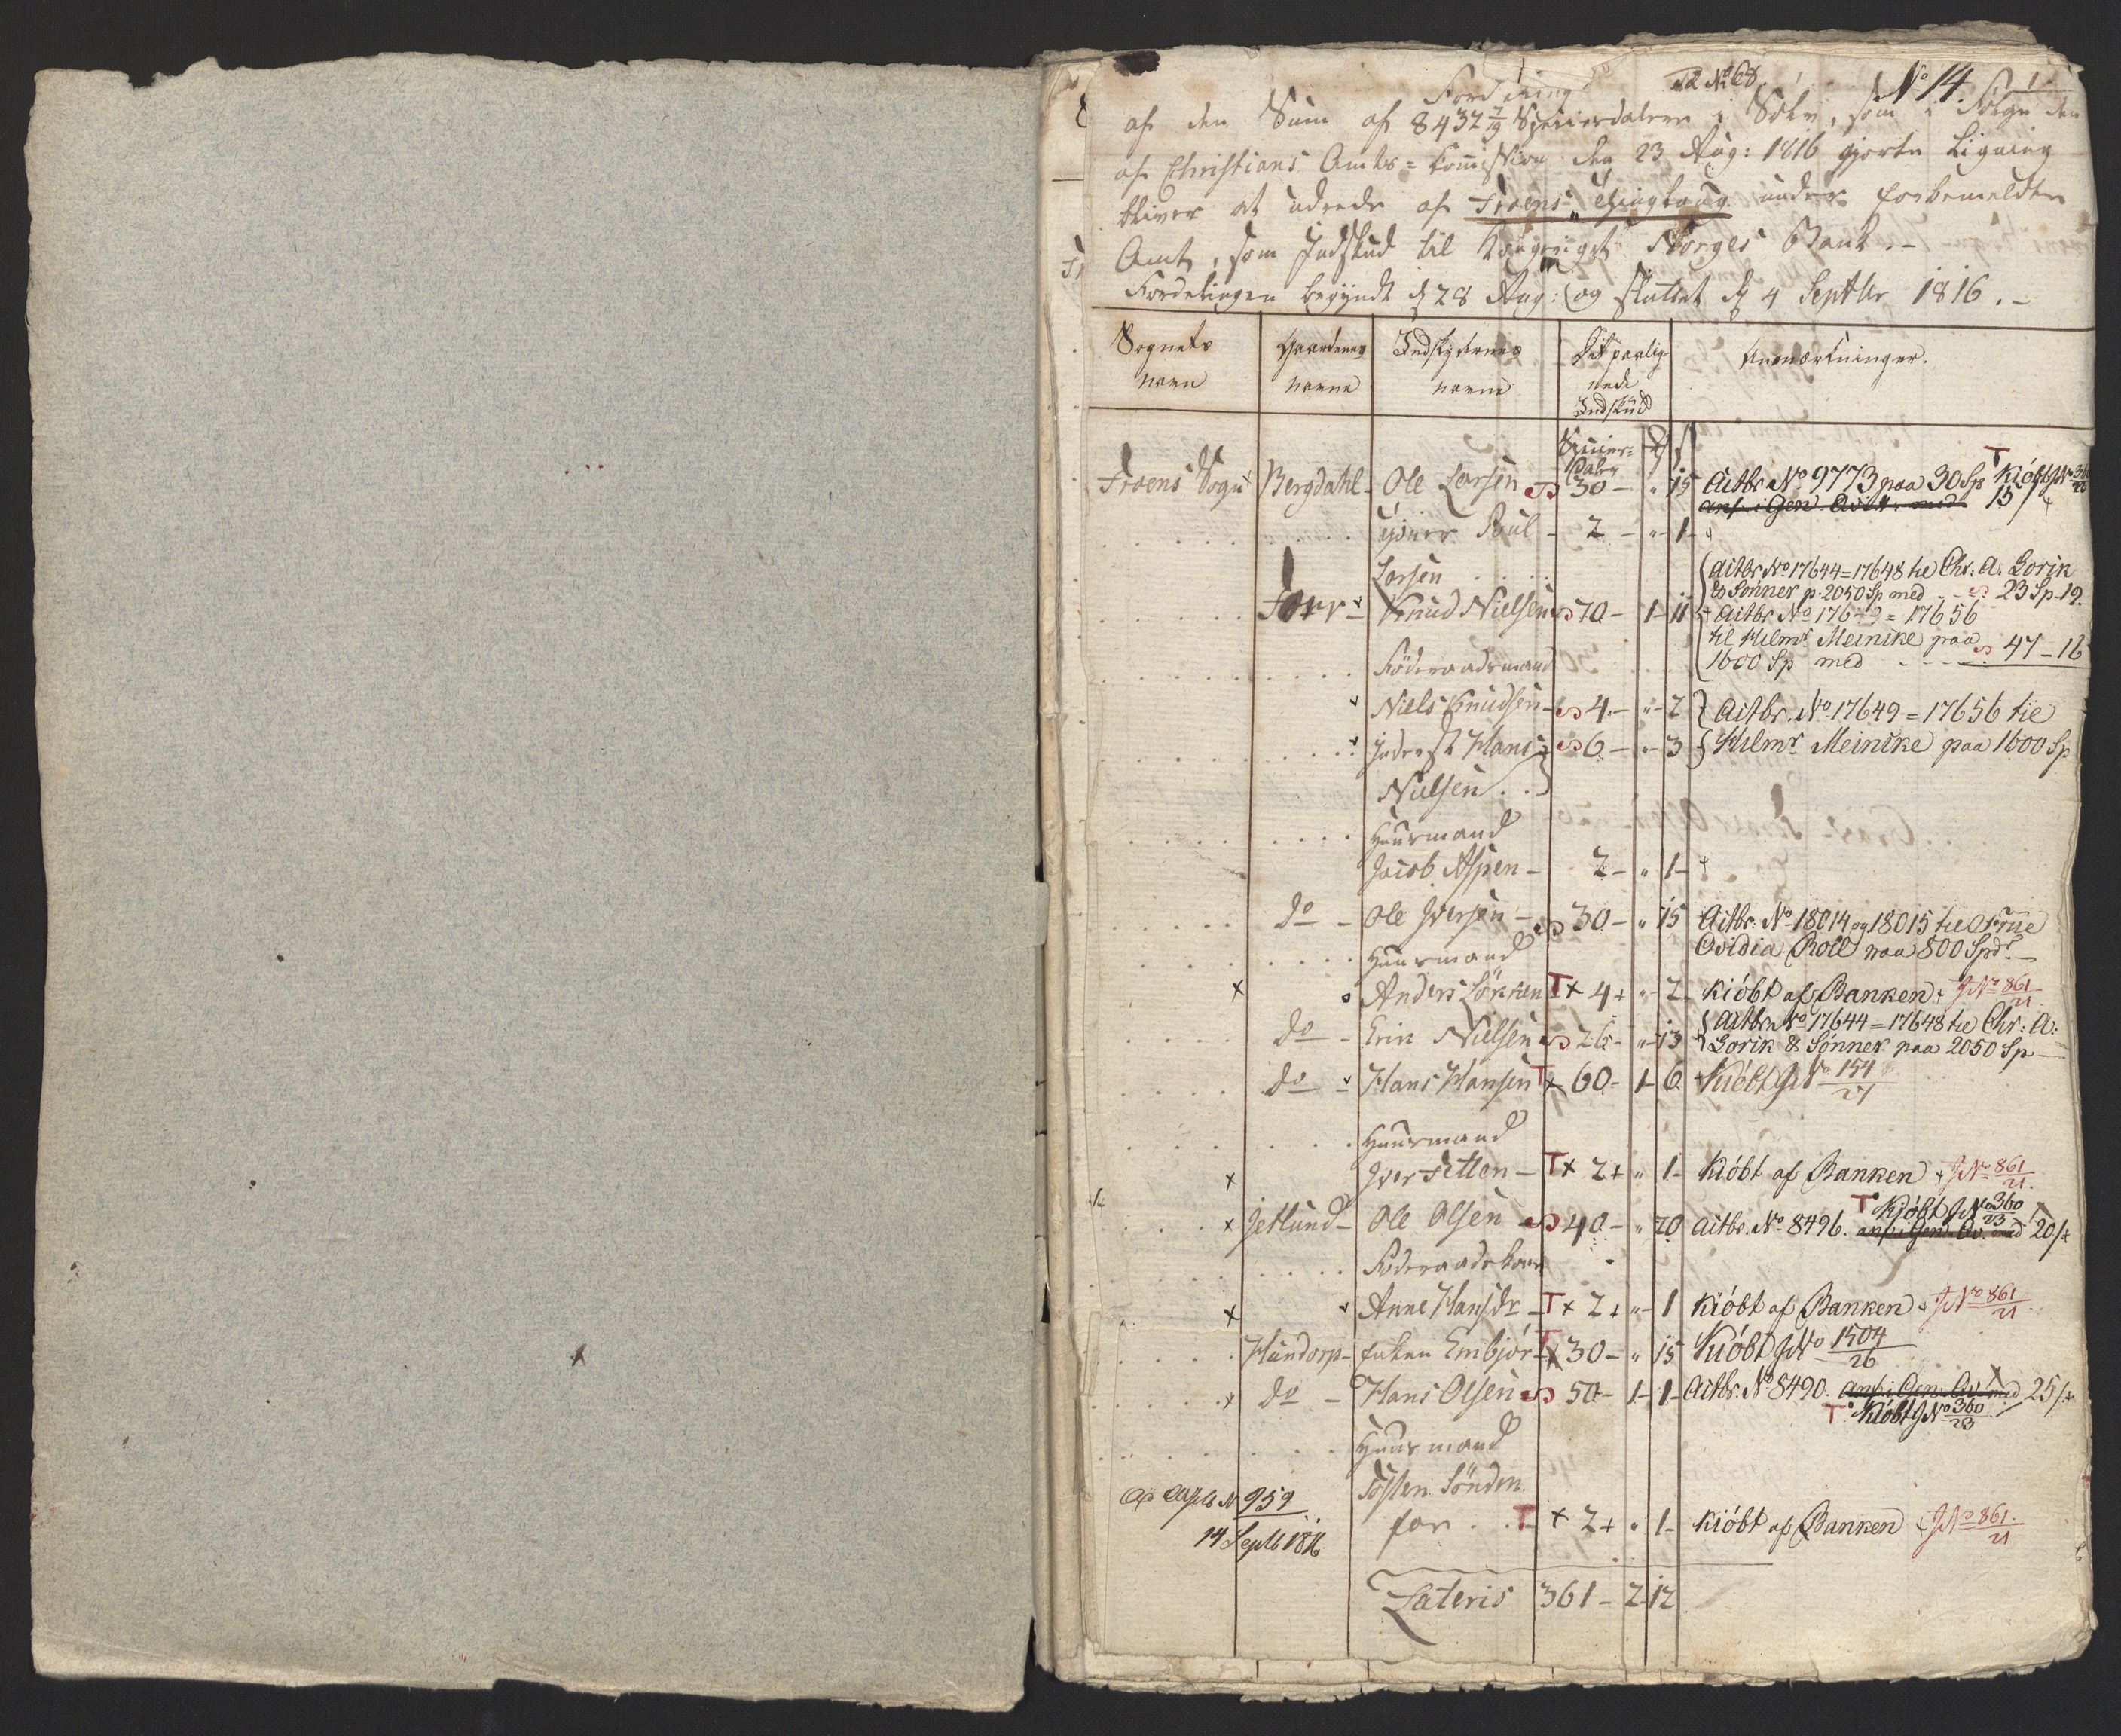 Fordeling
No 68
No 14. 1
af den Sum af 8432 7/9 Speciesdaler i Sølv, som i Følge den
af Christians Amts=Commission den 23 Aug: 1816 gjorte Ligning
bliver at udrede af Froens Thinglaug under forbemeldte
Amt, som Indskud til Kongeriget Norges Bank.-
Fordelingen begyndt d 28 Aug: og sluttet d 4 Septbr 1816.-
Sognets navn | Gaardenes navne | Indskydernes navne | Det paalignede Indskud | Anmærkninger.
Species Daler
Froens Sogn Bergdahl- Ole Larsen 30 - " 15 Actbr No 9773 paa 30 Sp Kiøbt JNo 360/23
ans. i Gen. med 15
Poul 2 - " - 1 -
Larsen
Forr - Knud Nielsen 70 - 1 - 11 Actbr No 17644 = 17648 til Chr. A. Lorik
& Sønner p. 2050 Sp med 23 Sp. 19.
Actbr No 17649 = 17656
til Hilmr Meincke paa
1600 Sp med 47 - 16
Föderaadsmand
Niels Knudsen - 4 - " - 2 Actbr. No 17649 = 17656 til
Inderst Hans 6 - " - 3 Hilmr Meincke paa 1600 Sp
Nielsen . .
Huusmand
Jacob Aspen - 2 - " 1 -
do - Ole Iversen - 30 - " 15 Actbr. No 18014 og 18015 til Frue
Ovidia Roll paa 800 Spd.
Huusmand
Anders Løkken T x 4 + " - 2 Kiøbt af Banken JNo 861/21
do - Erik Nielsen 26 - " - 13 Actbr No 17644 = 17648 til Chr: A:
Lorik & Sønner paa 2050 Sp
do - Hans Hansen T x 60 - 1 - 6 Kiøbt JNo 154/27
Huusmand
Iver Fetten - T x 2 + " 1 - Kiøbt af Banken JNo 861/21
Jetlund - Ole Olsen 40 - " 20 Actbr. No 8496. T Kiøbt JNo 360/23
ans. i Gen. med 20
Föderaadskone
Anne Hansdr - T x 2 + " - 1 Kiøbt af Banken JNo 861/21
Hundorp - Enken Embjør T x 30 - " 15 Kiøbt JNo 1504/26
do - Hans Olsen 50 - 1 - 1 - Actbr. No 8490. ans. i Gen. med 25
T Kiøbt JNo 360/23
Huusmand
Tosten Sönden
for . . T x 2 + " 1 - Kiøbt af Banken JNo 861/21
No 959
14 Septb 1816
Lateris 361 - 2 12